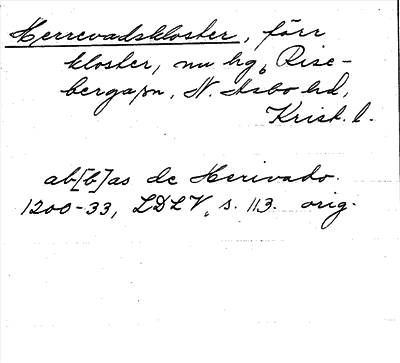 Herrevadskloster, förr
kloster, nu hg, Rise-
berga sn, N. Åsbo hd,
Krist. l.
ab[b]as de Herivado.
1200-33, LDLV, s. 113. orig.